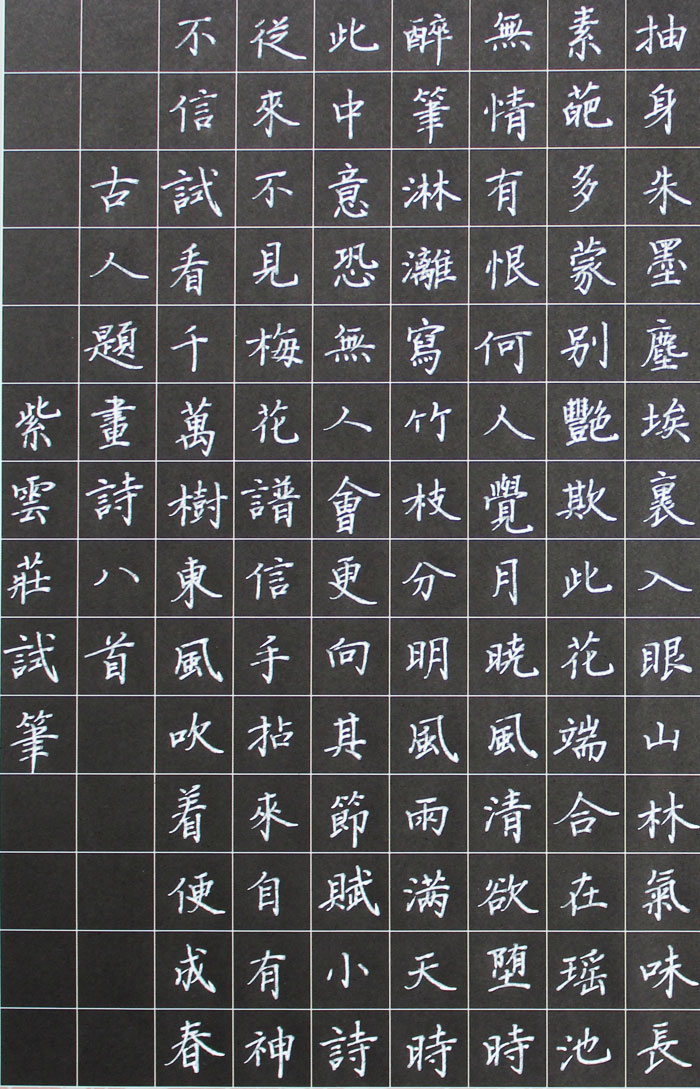 抽身朱墨塵埃裏入眼山林氣味長
素葩多蒙别艷欺此花端合在瑶池
無情有恨何人覺月曉風清欲堕時
醉筆淋灕寫竹枝分明風雨满天時
此中意恐無人會更向其節賦小詩
從來不見梅花譜信手拈來自有神
不信試看千萬樹東風吹着便成春
古人題畫詩八首
紫雲莊試筆